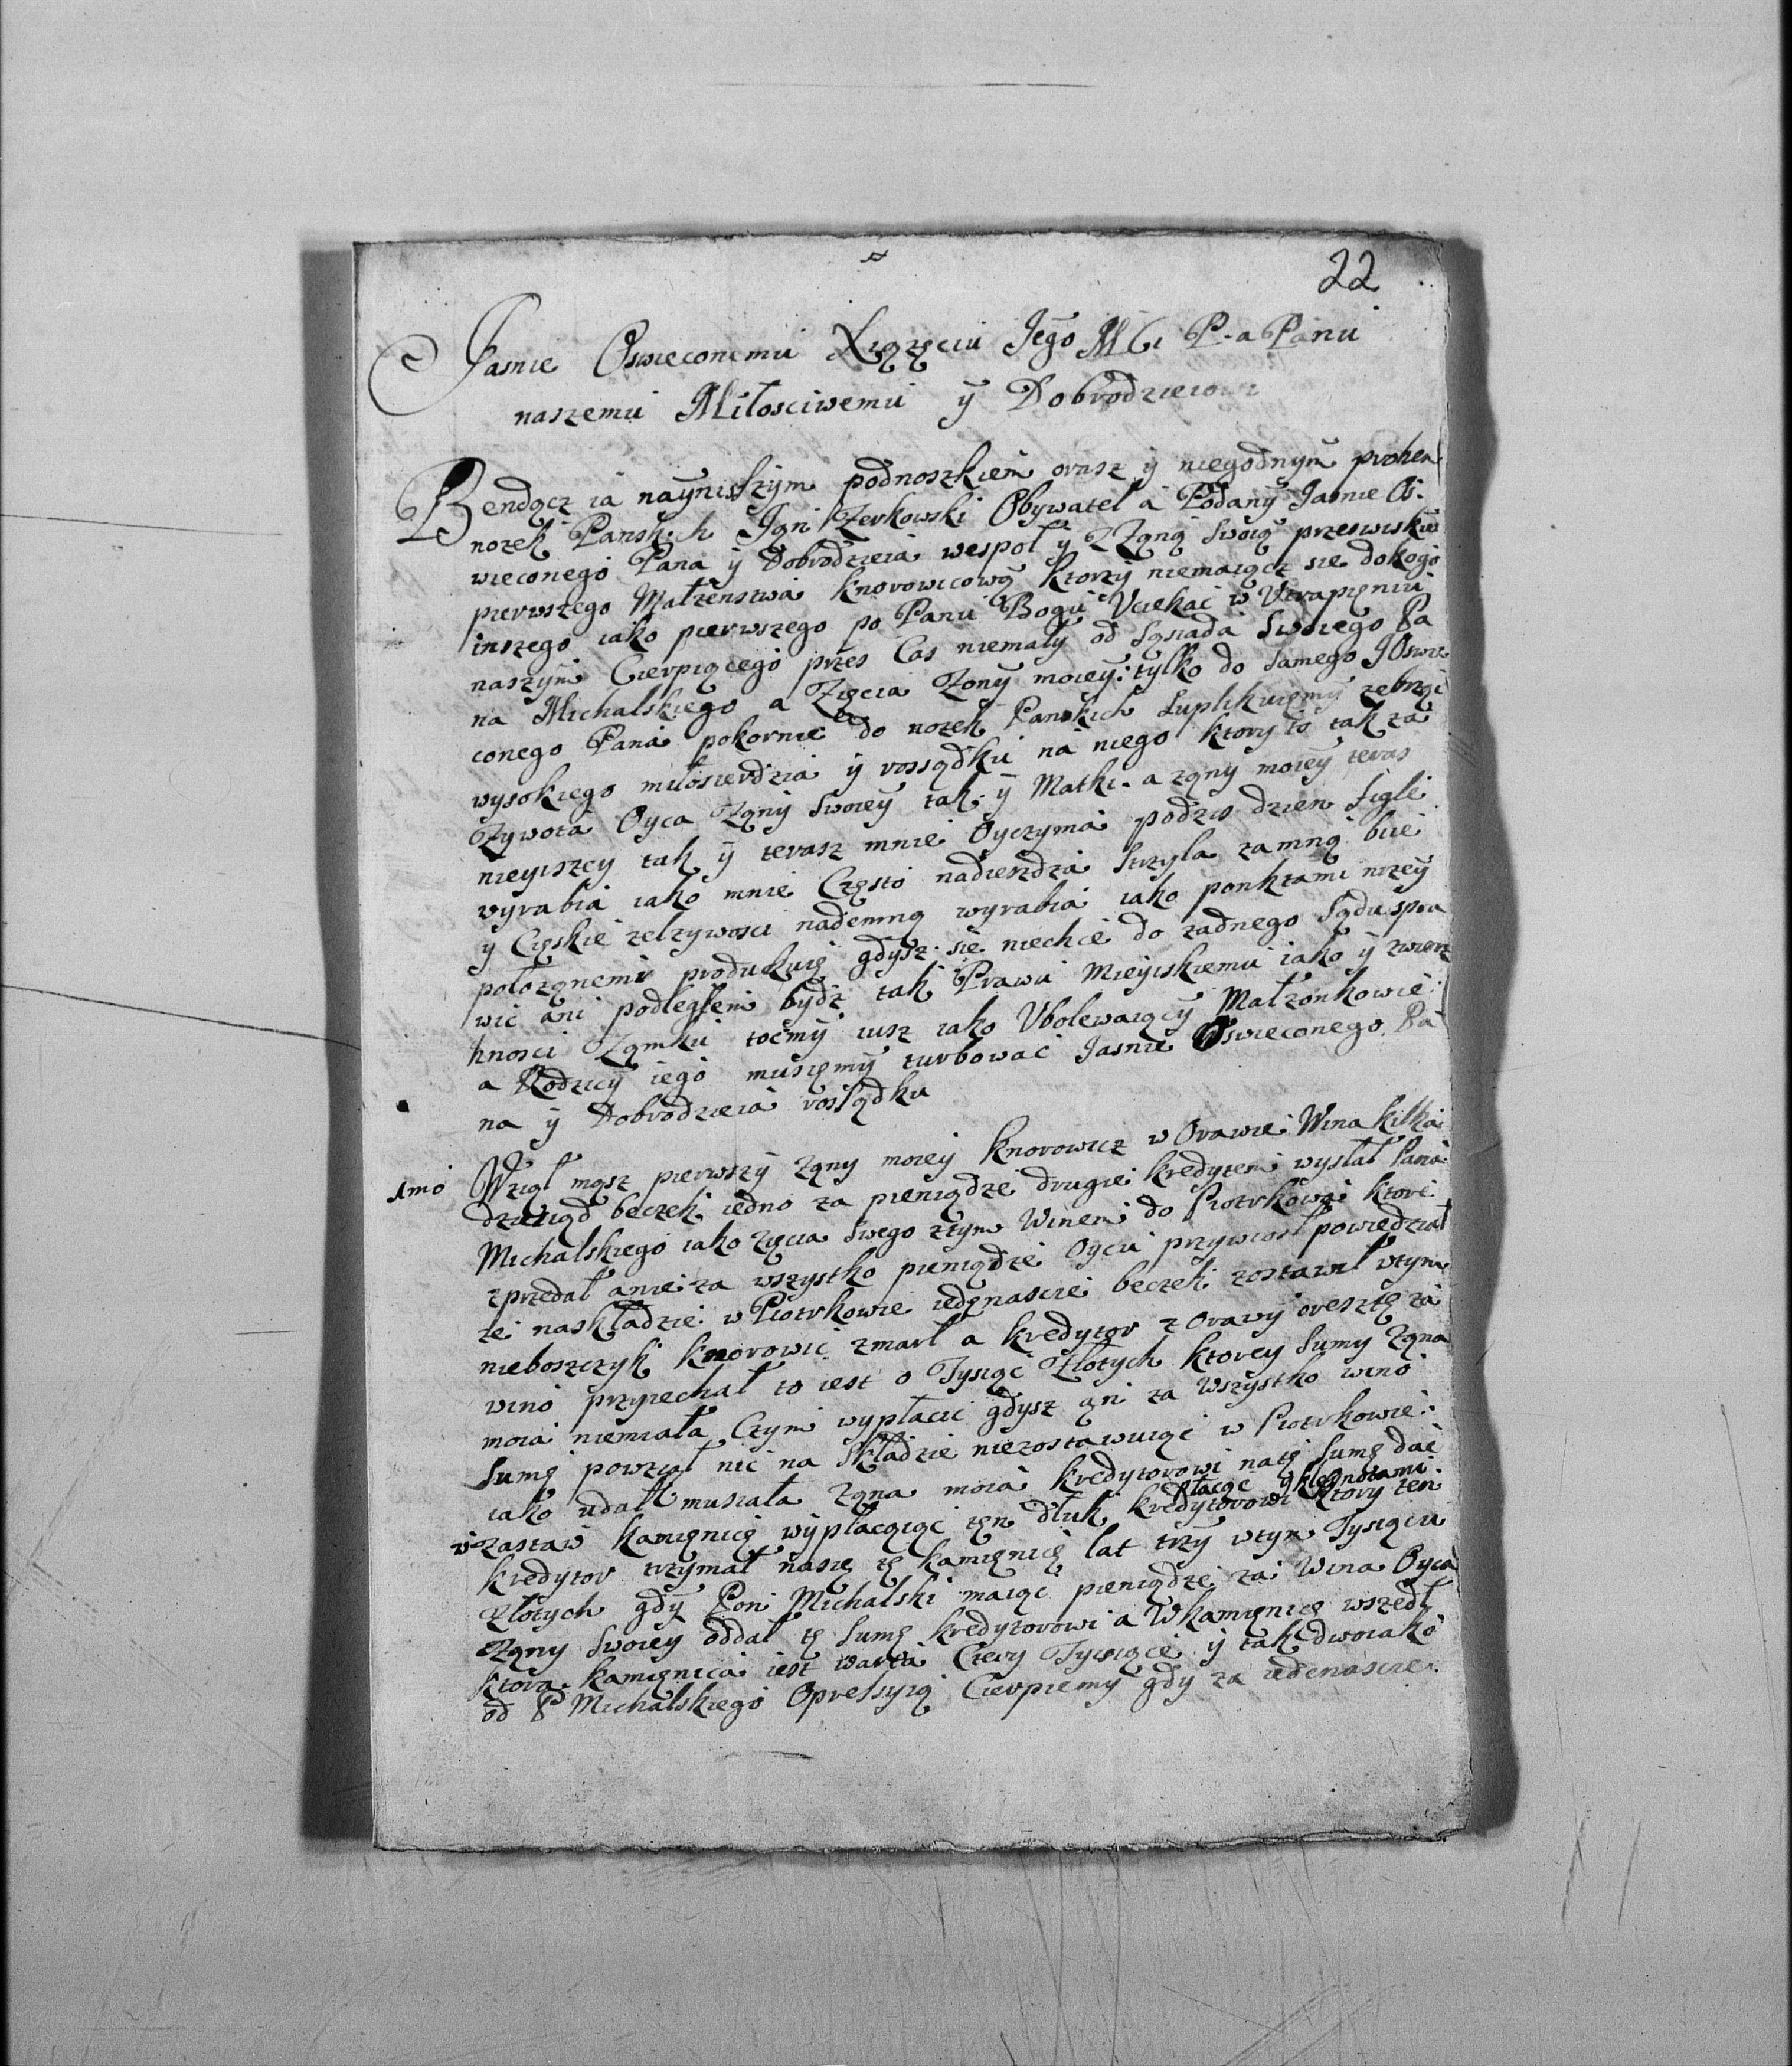 22
Jasnie Oswieconemu Xiązęciu Jego MCi P-a Panu
naszemu Miłosciwemu ÿ Dobrodzieiowi
Bendącz ia naÿnisszym podnoszkiem orasz ÿ niegodnÿm prohen
nozek Jan Zerkowski Obÿwatel a Podanÿ Jasnie Os.
wieconego Pana ÿ Dobrodzieia wespoł ÿ z Zoną swoią przeswiskiem
pierwszego Małzenstwa Knorowicową Ktorzÿ niemaiącz sie dokogo
inszego iako pierwszego po Panu Bogu Uciekac w Utrapieniu
naszÿm Cierpiącego przes Cas niemałÿ od Sąsiada Swoiego Pa
na Michalskiego a Zięcia Zonÿ moieÿ: tylko do Samego JOswie
conego Pana pokornie do nozek Panskich Suplikuiemÿ zebrąc
wysokiego miłosierdzia ÿ rossądku na niego ktory to tak za
Zÿwota Oyca Zony Swoieÿ tak ÿ Matki. a zony moieÿ teras
nieyiszey tak ÿ terasz mnie Oyczyma podzis dzien figle
wyrabia iako mnie Często nadiezdza Strzyla zamną biie
y Cięskie zelzywosci nademną wyrabia iako ponktami nizeÿ
połozonemi produkuię gdysz się niechce do zadnego Sądu spra
wic ani podległem bÿdz tak Prawu Mieÿskiemu iako ÿ zwierz
hnosci Zamku tocmÿ iusz iako Ubolewaiącÿ Małzonkowie
a Rodzicÿ iego musiemÿ turbowac Jasnie Oswieconego Pa
na ÿ Dobrodzieia rossądku
1mo Wziął mąsz pierwszÿ zony moiey Knorowicz w Orawie Wina kilka
dziesiąd beczek iedno za pieniądze drugie kredytem wysłał Pana
Michalskiego iako zięcia swego ztym Winem do Piotrkowa ktore
zprzedał anie za wszystko pieniądze Oycu przywiosł powiedział
ze naskładzie w Piotrkowie iedenascie beczek zostawił wtym
nieboszczyk Knorowic zmarł a kredytor z Orawy oresztę za
wino przyiechał to iest o Tysiąc Złotych ktorey Sumy zona
moia niemiała Czym wypłacic gdysz on za wszystko wino
Sumę powziął nic na Składzie niezostawuiąc w Piotrkowie:
iako udał musiała zona moia kredytorowi natę Sumę dac
płacąc klenotami
wzastaw kamięnicę wÿpłacaiąc ten dłuk kredytorowi Ktory ten
kredytor trzymał nasię tę kamięnicę lat trzÿ wtym Tysiącu
Złotych gdÿ Pon Michalski maiąc pieniądze za Wina Oyca
zony Swoiey oddał tę Sumę kredytorowi a Wkamięnicę wszedł
ktora kamięnica iest warta Ctery Tysiące y tak dwoiako
od P Michalskiego Opressyią Cierpiemy gdy za iedenascie